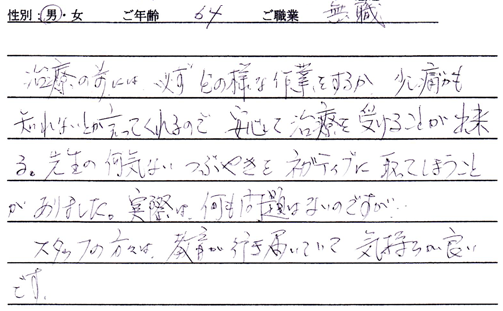 性別:男・女 ご年齢 64 ご職業 無職
治療の前には必ずどの様な作業をするか 少し痛かも
知れないとか言ってくれるので 安心して治療を受けることが出来
る。先生の何気ないつぶやきをネガティブに取ってしまうこと
がありました。実際は、何も問題はないのですが…
スタッフの方々は、教育が行き届いていて 気持ちが良い
です。